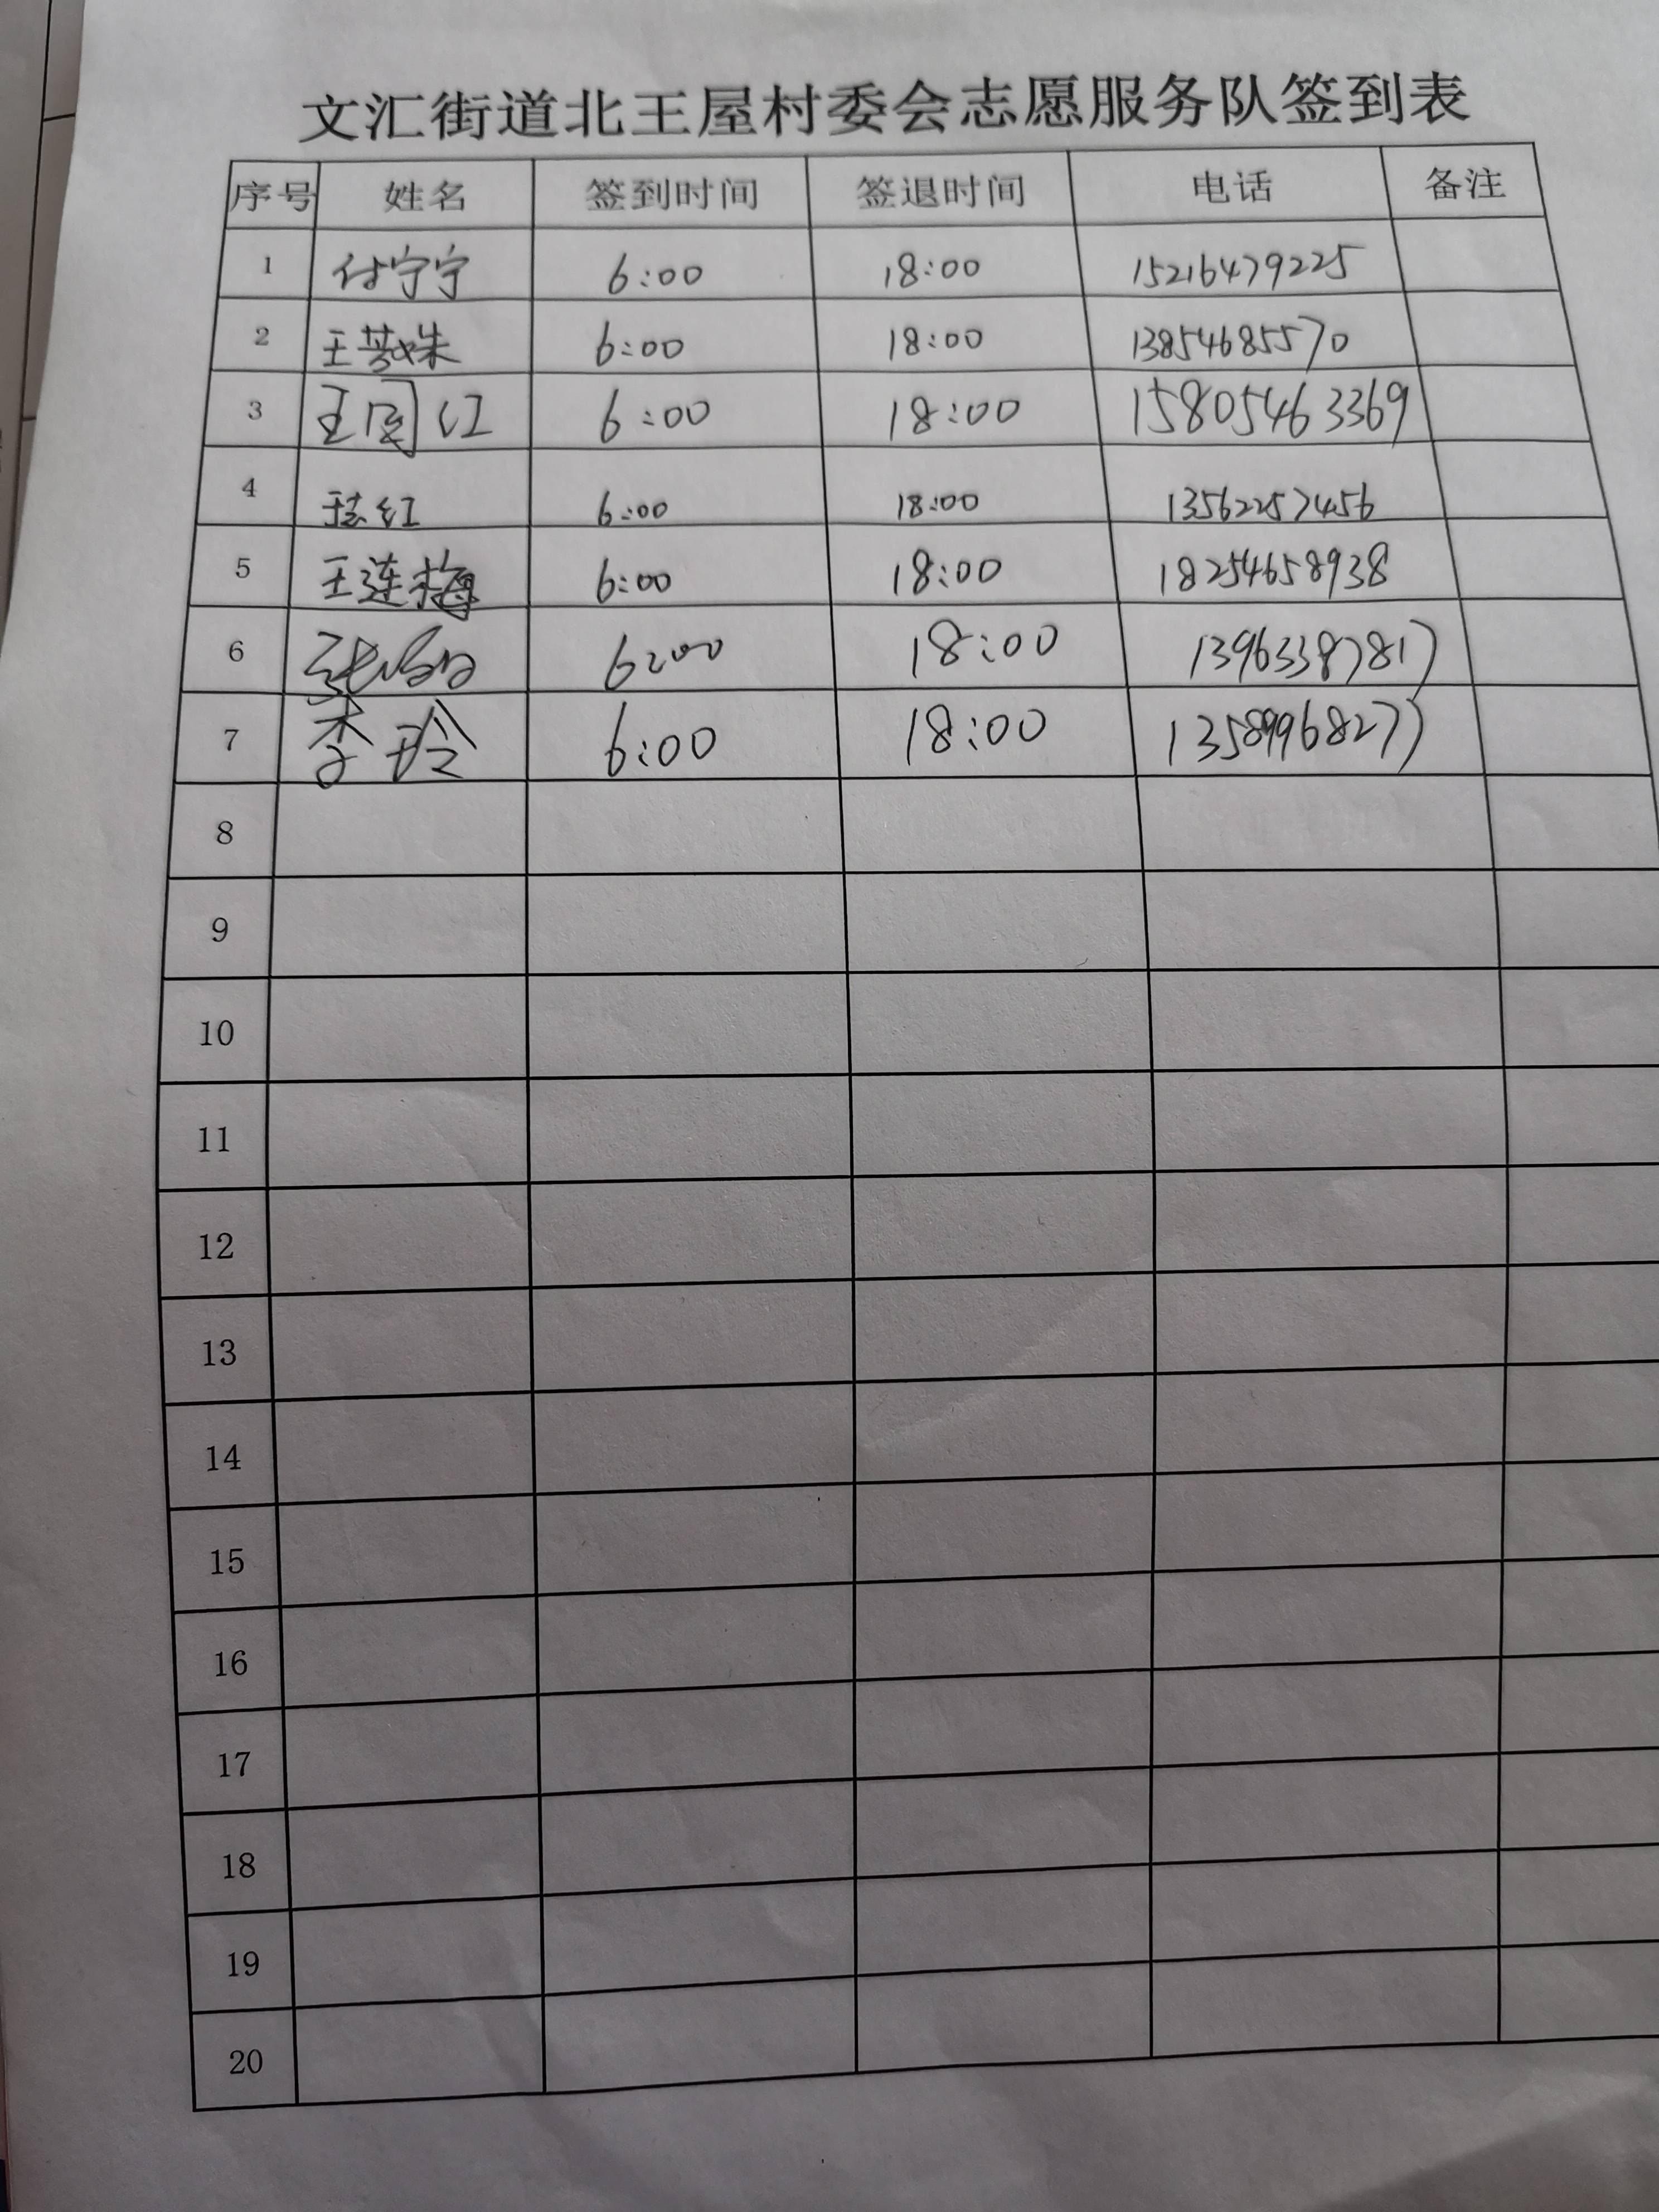 文汇街道北王屋村委会志愿服务队签到表
序号 姓名 签到时间 签退时间 电话 备注
1 付宁宁 6:00 18:00 15216479225
2 王 姝 6:00 18:00 13854685570
3 王 红 6:00 18:00 15805463369
4 红 6:00 18:00 13562257456
5 王连梅 6:00 18:00 18254658938
6 6:00 18:00 13963387817
7 李玲 6:00 18:00 13589968277
8
9
10
11
12
13
14
15
16
17
18
19
20